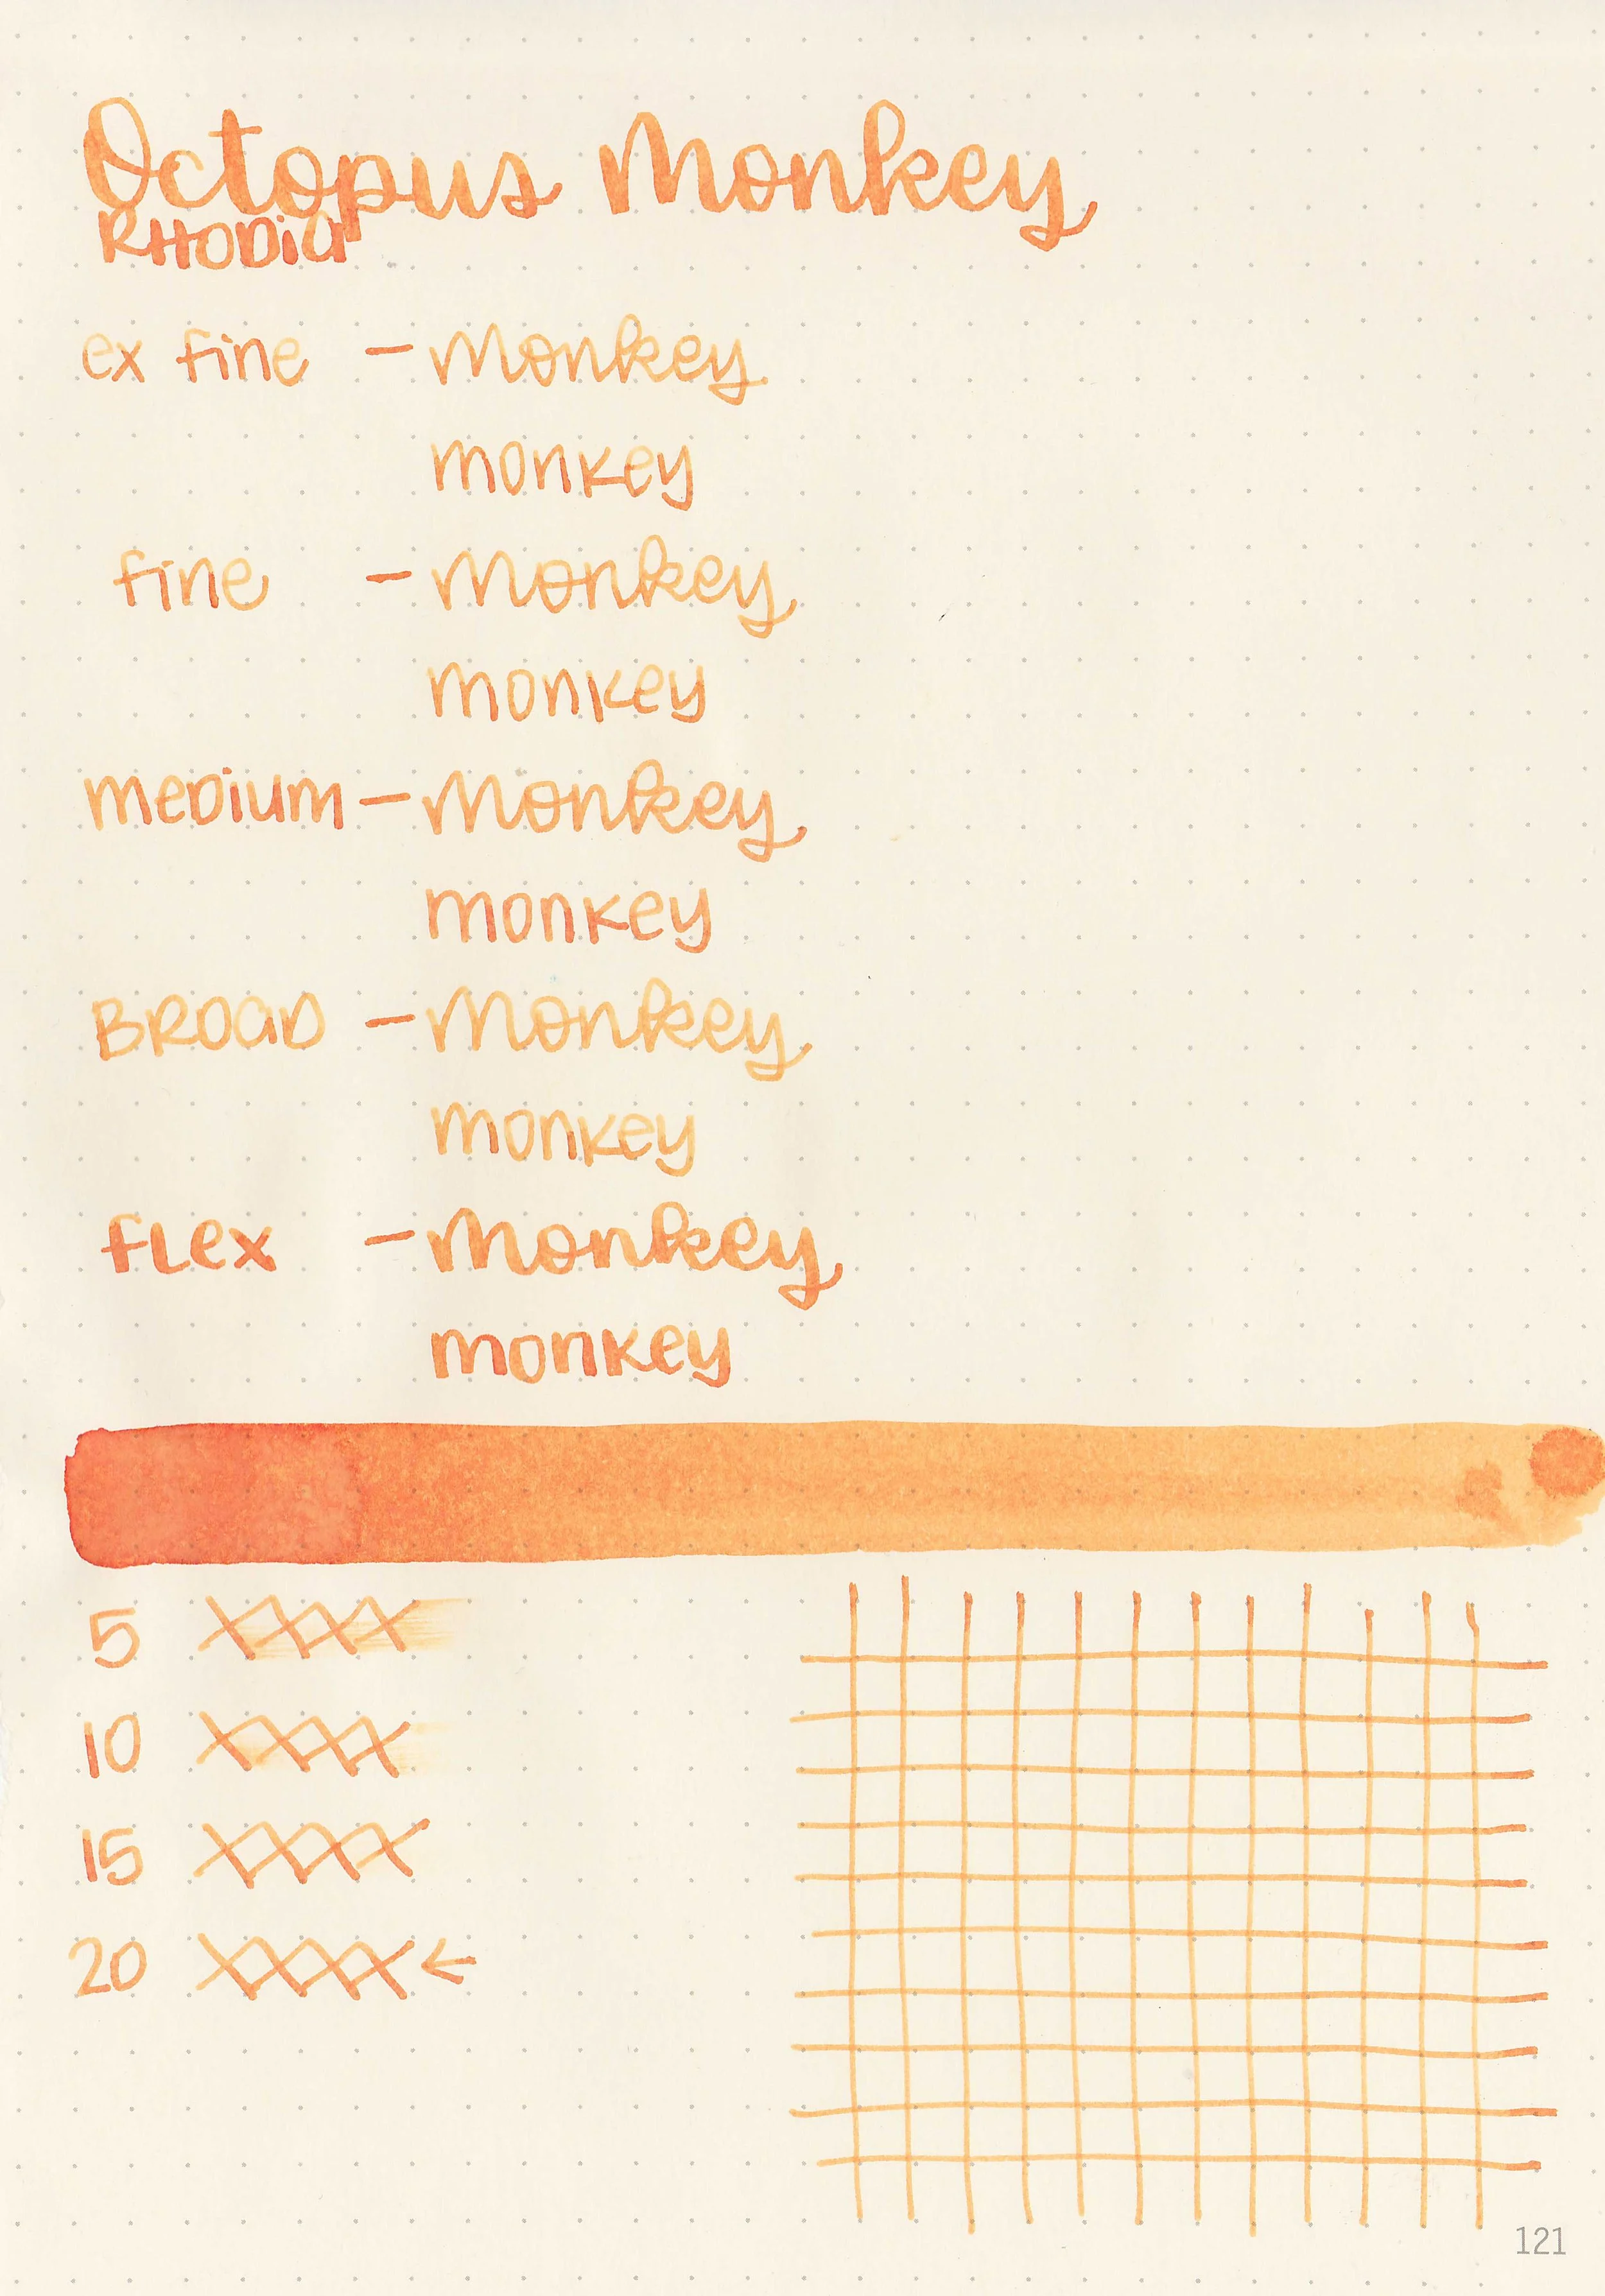 Octopus Monkey
RHODia
ex fine - Monkey
monkey
fine - Monkey
monkey
meDium - Monkey
monkey
BROaD - Monkey
monkey
fLex - Monkey
monkey
5 XXXX
10 XXXX
15 XXXX
20 XXXX ←
121